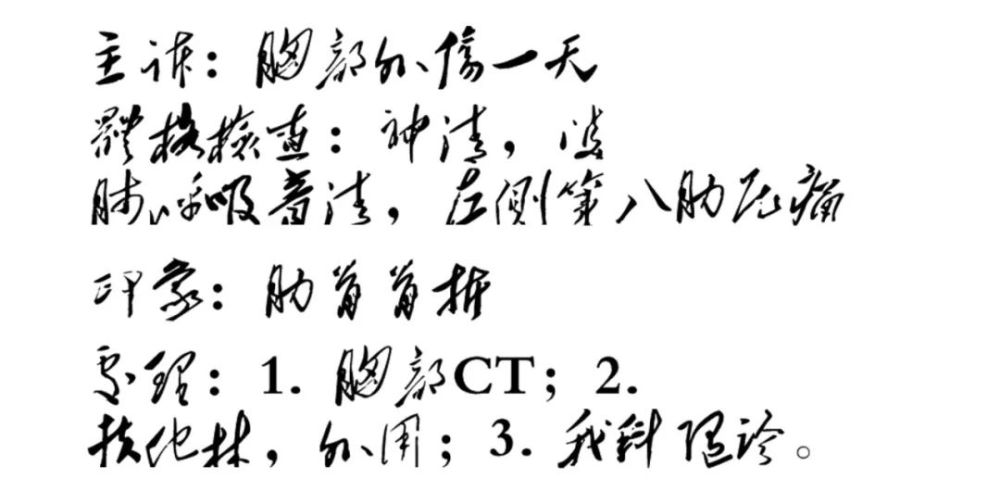 主诉：胸部外傷一天
體格檢查：神清，雙
肺呼吸音清，左側第八肋壓痛
印象：肋骨骨折
處理：1. 胸部CT；2.
扶他林，外用；3. 我科隨診。